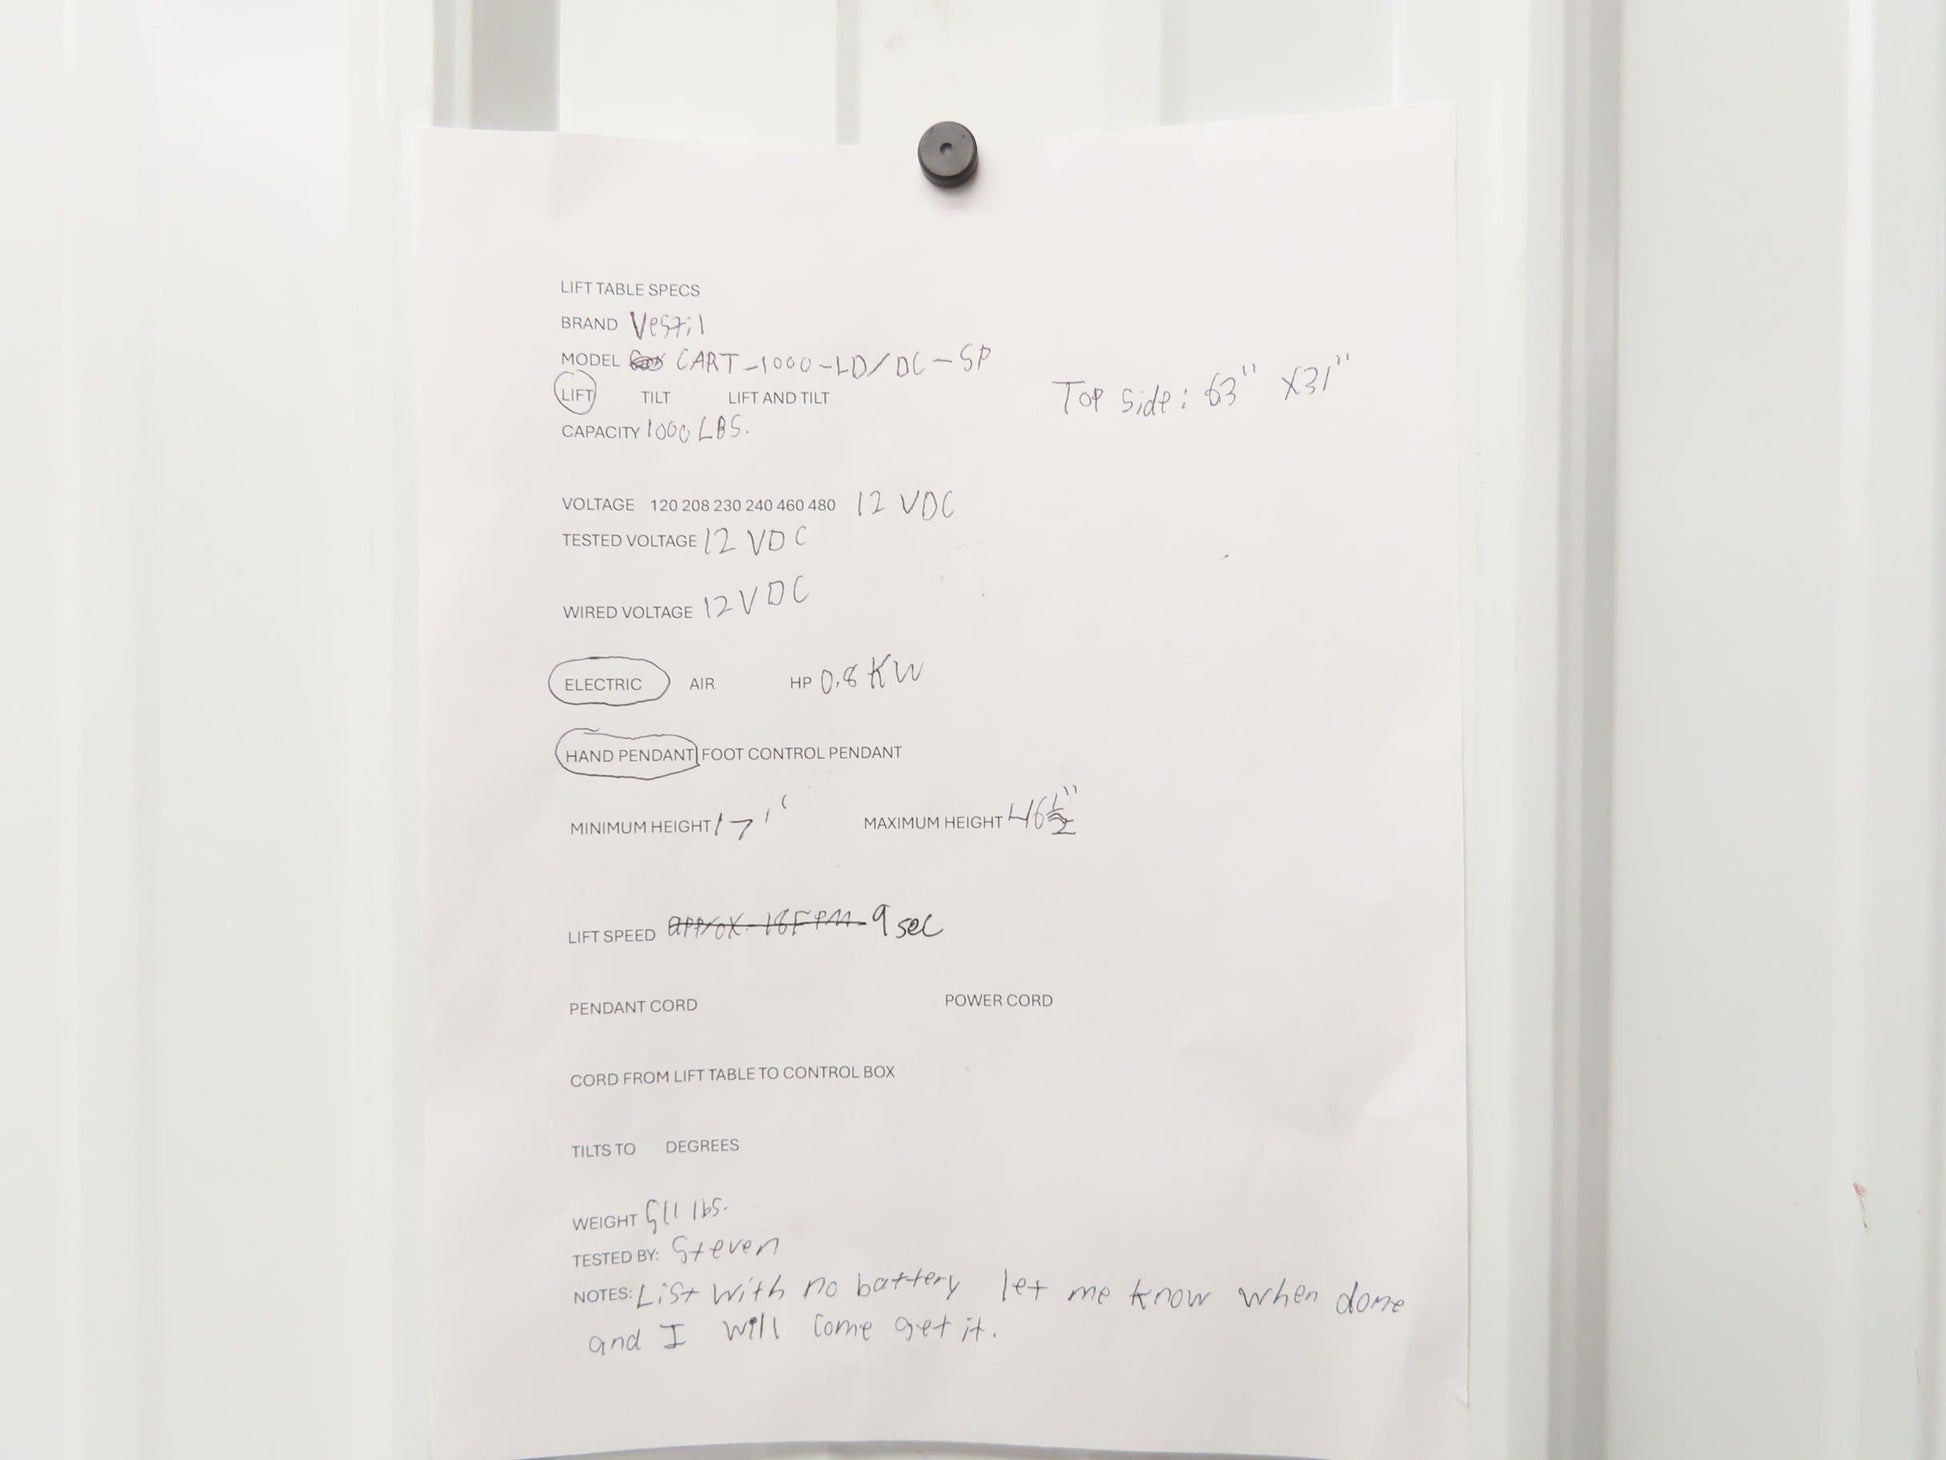 LIFT TABLE SPECS
BRAND Vestil
MODEL CART-1000-LD/DC-SP
LIFT TILT LIFT AND TILT
Top side: 63" x31"
CAPACITY 1000 LBS.
VOLTAGE 120 208 230 240 460 480 12 VDC
TESTED VOLTAGE 12 VDC
WIRED VOLTAGE 12 VDC
ELECTRIC AIR HP 0.8 KW
HAND PENDANT FOOT CONTROL PENDANT
MINIMUM HEIGHT 17" MAXIMUM HEIGHT 46 1/2"
LIFT SPEED approx 18 FPM 9 sec
PENDANT CORD POWER CORD
CORD FROM LIFT TABLE TO CONTROL BOX
TILTS TO DEGREES
WEIGHT 511 lbs.
TESTED BY: Steven
NOTES: List with no battery let me know when done
and I will come get it.